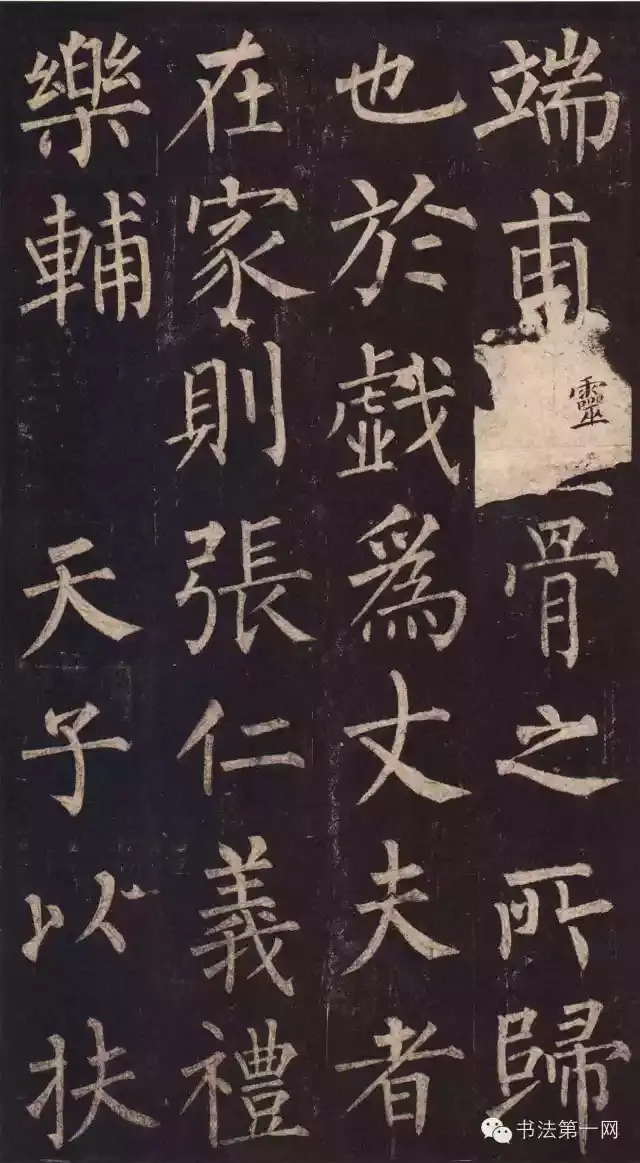 端甫靈骨之所歸
也於戯爲丈夫者
在家則張仁義禮
樂輔 天子以扶
书法第一网